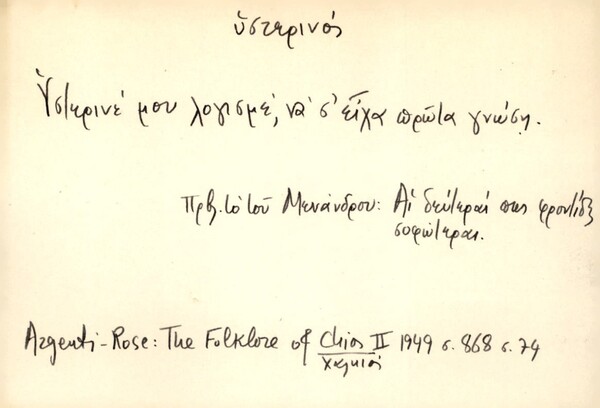 ὑστερινός
Ὑστερινέ μου λογισμέ, νά σ' εἶχα πρῶτα γνώση.
Πρβ. τό τοῦ Μενάνδρου: Αἱ δεύτεραί πως φροντίδες
σοφώτεραι.
Argenti-Rose: The Folklore of Chios II 1949 σ. 868 ς. 74